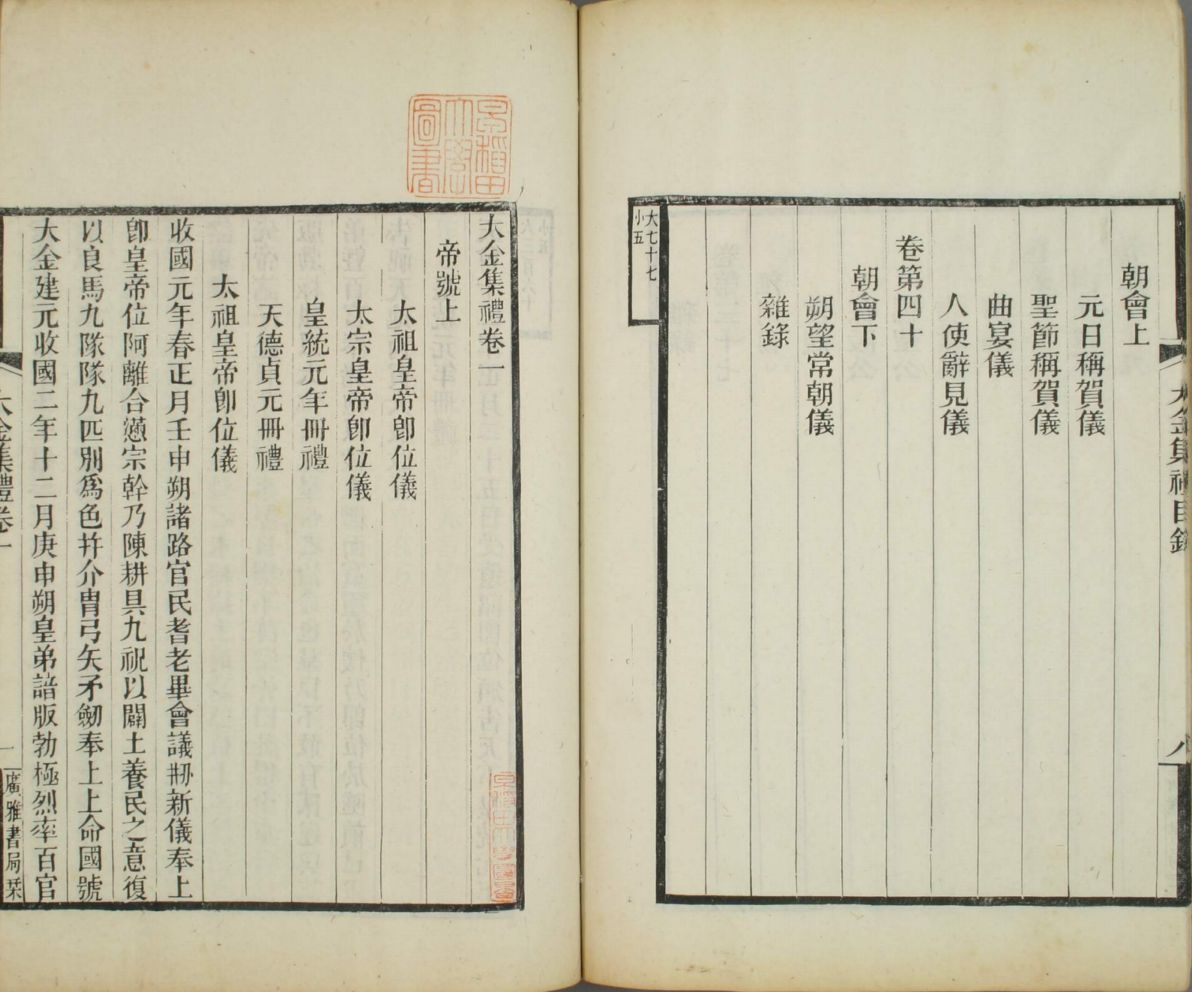 大金集禮目錄
八
朝會上
元日稱賀儀
聖節稱賀儀
曲宴儀
人使辭見儀
卷第四十
朝會下
朔望常朝儀
雜錄
大七十七
小五
早稻田
大學
圖書
大金集禮卷一
帝號上
太祖皇帝卽位儀
太宗皇帝卽位儀
皇統元年冊禮
天德貞元冊禮
太祖皇帝卽位儀
收國元年春正月壬申朔諸路官民耆老畢會議剏新儀奉上
卽皇帝位阿離合懣宗幹乃陳耕具九祝以闢土養民之意復
以良馬九隊隊九匹別爲色幷介冑弓矢矛劒奉上上命國號
大金建元收國二年十二月庚申朔皇弟諳版勃極烈率百官
大金集禮卷一
一
廣雅書局栞